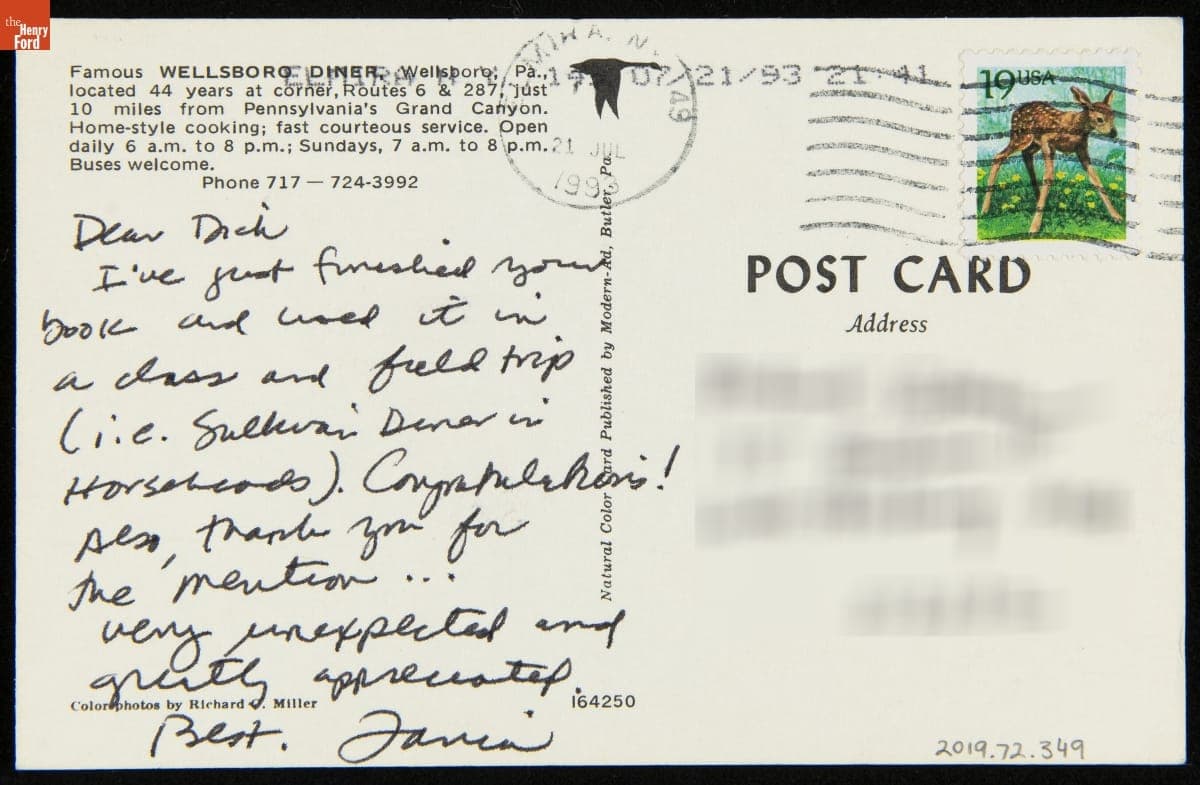 the
Henry
Ford
Famous WELLSBORO DINER, Wellsboro, Pa.,
located 44 years at corner, Routes 6 & 287, just
10 miles from Pennsylvania's Grand Canyon.
Home-style cooking; fast courteous service. Open
daily 6 a.m. to 8 p.m.; Sundays, 7 a.m. to 8 p.m.
Buses welcome.
Phone 717 — 724-3992
ELMIRA N.Y. 149 07/21/93 21:41
21 JUL
1993
19 USA
Dear Dick
I've just finished your
book and used it in
a class and field trip
(i.e. Sullivan Diner in
Horseheads). Congratulations!
Also, thank you for
the mention ...
very unexpected and
greatly appreciated.
Best.
Color photos by Richard C. Miller
164250
Natural Color Card Published by Modern-Ad, Butler, Pa.
POST CARD
Address
2019.72.349